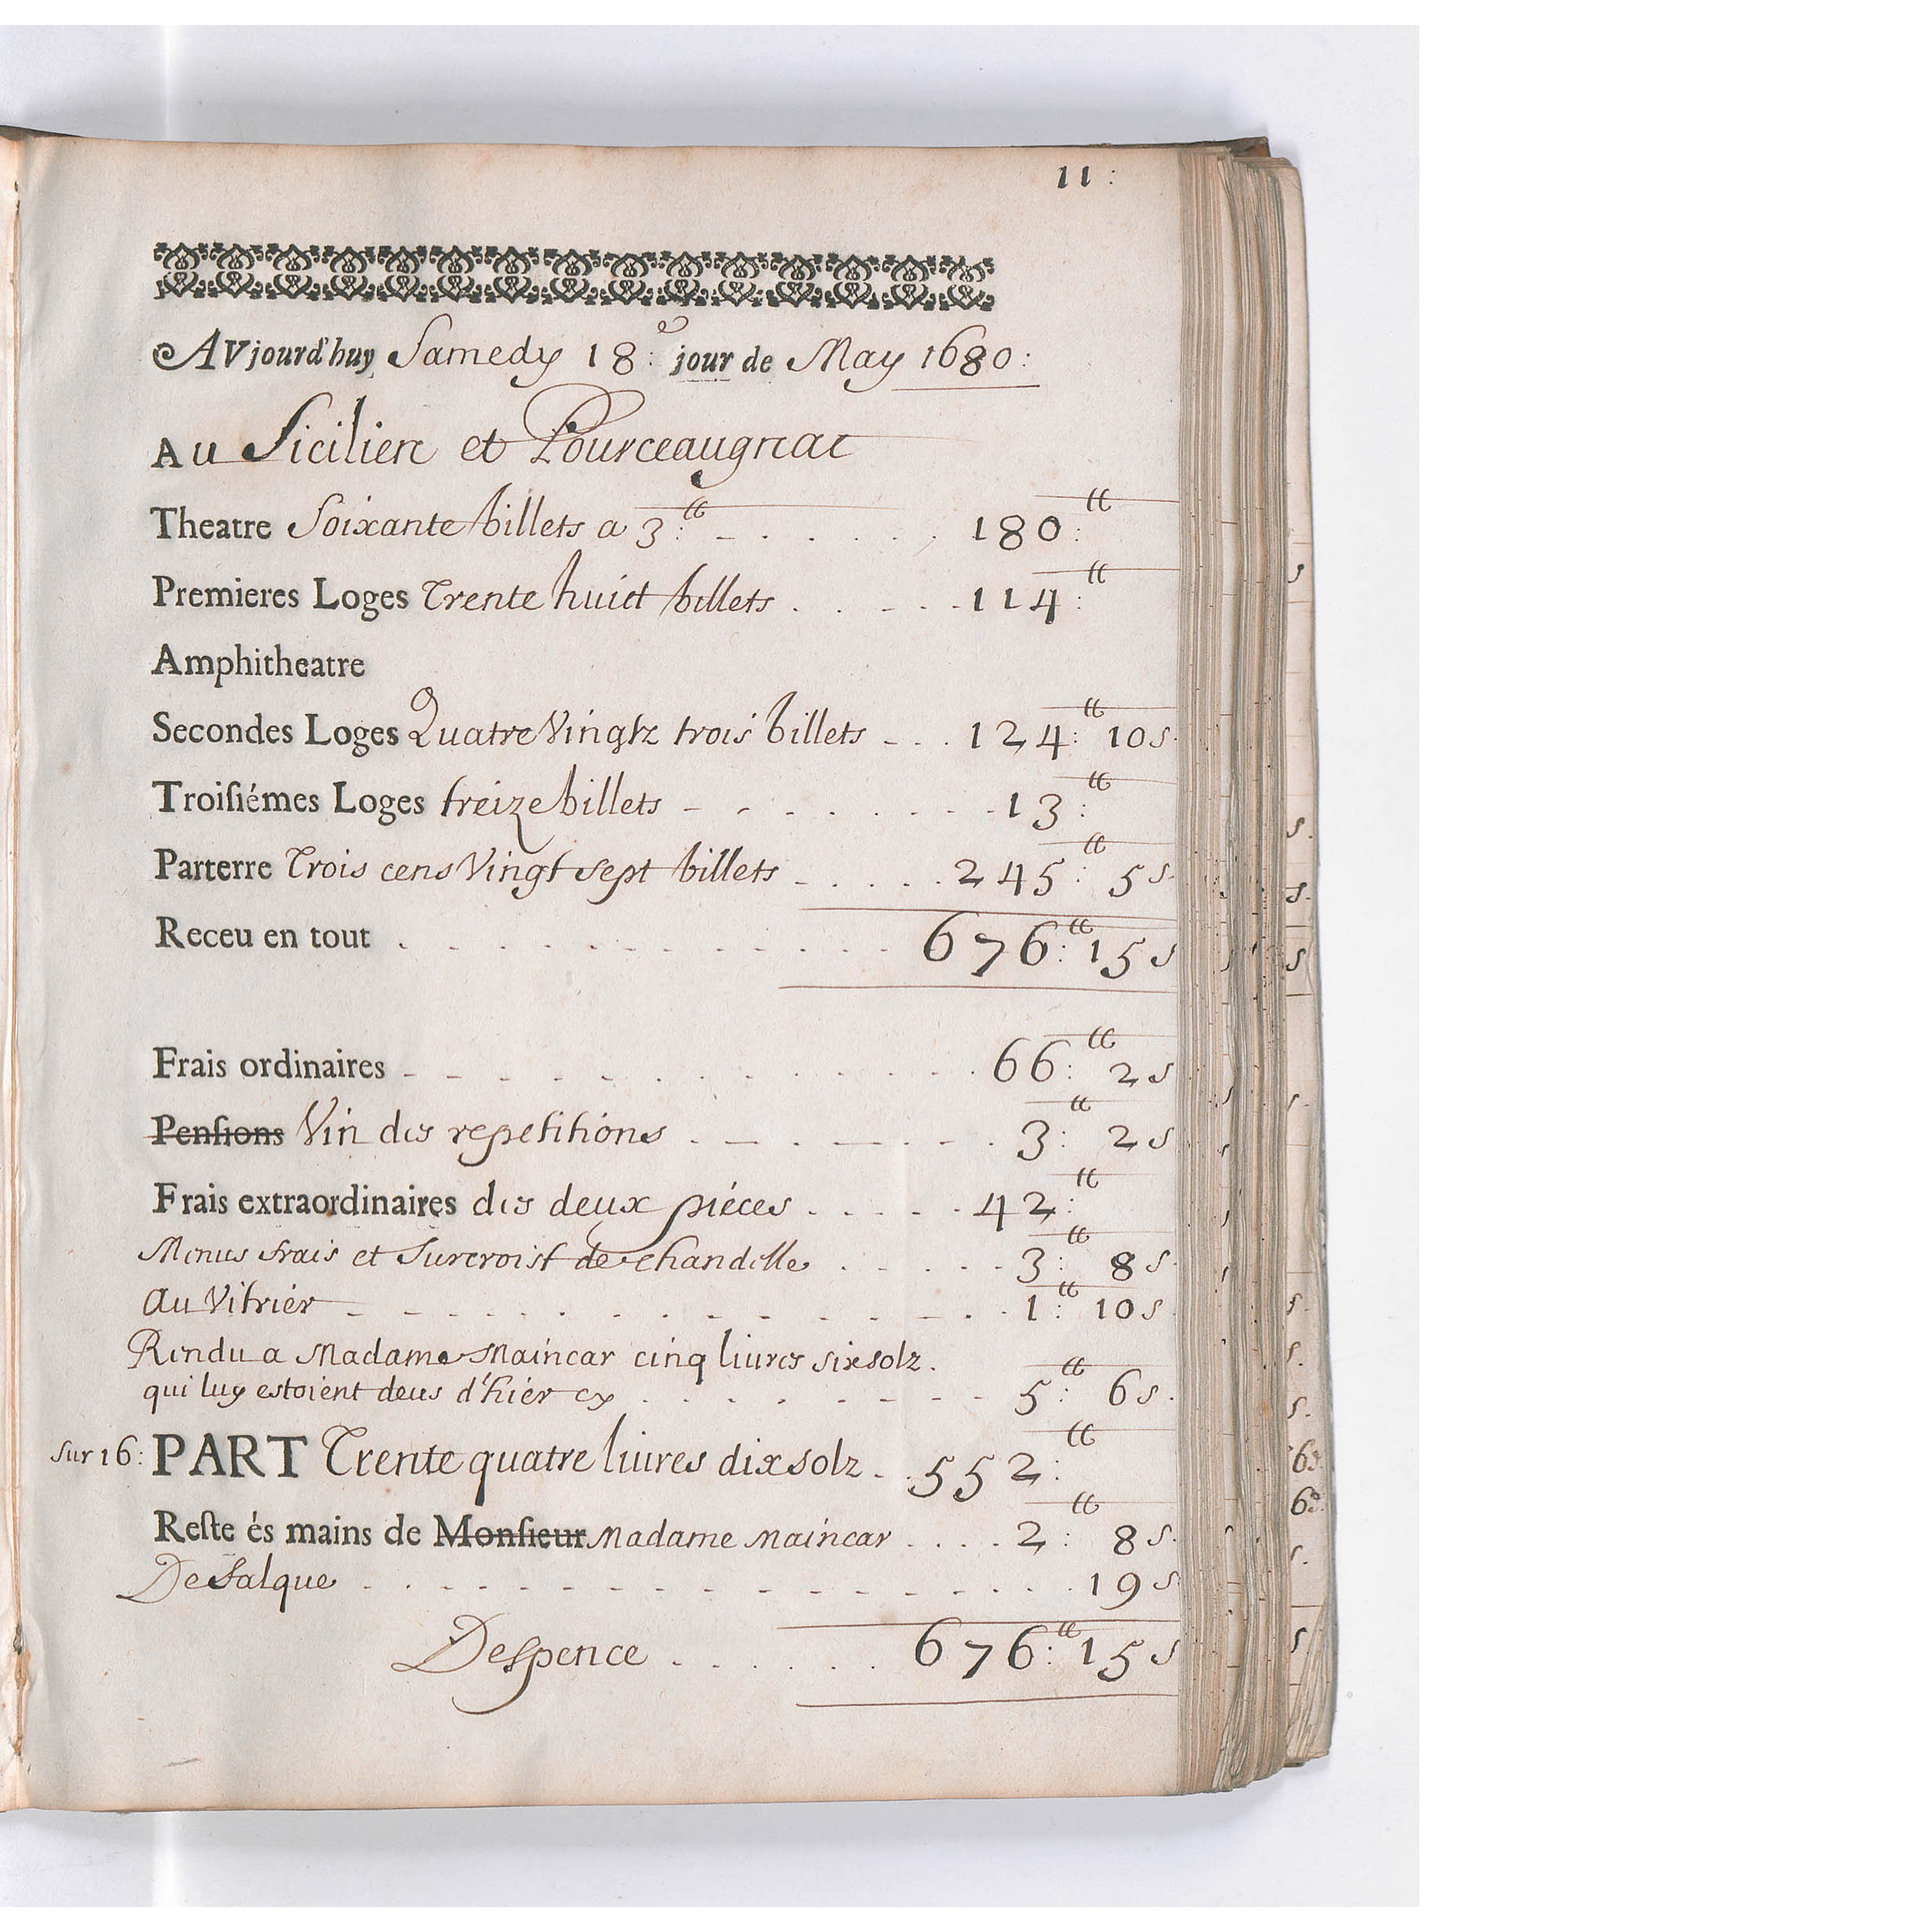 11:
AVjourd'huy Samedy 18:e jour de May 1680:
Au Sicilien et Pourceaugnac
Theatre Soixante billets a 3:tt - . . . . 180:tt
Premieres Loges Trente huict billets . . - . . 114:tt
Amphitheatre
Secondes Loges Quatre Vingtz trois billets - . . 124:tt 10s.
Troisiémes Loges treize billets - - . . . . 13:tt
Parterre Trois cens Vingt sept billets - . . . . 245:tt 5s.
Receu en tout . . . . . . . . 676:tt 15s
Frais ordinaires - - - . . . . . 66:tt 2s
Pensions Vin des repetitions . - . - . . 3:tt 2s
Frais extraordinaires des deux piéces . . . . . 42:tt
Menus frais et Surcroist de chandelle . . . . 3:tt 8s.
Au Vitrier - - - . . . . . 1:tt 10s.
Rendu a Madame Maincar cinq liures six solz.
qui luy estoient deus d'hier cy . . . . . . 5:tt 6s.
Sur 16: PART Trente quatre liures dix solz . . 552:tt
Reste és mains de Monsieur Madame Maincar . . . . 2:tt 8s.
De Falque . . . . . . . . 19s
Despence . . . . . . 676:tt 15s